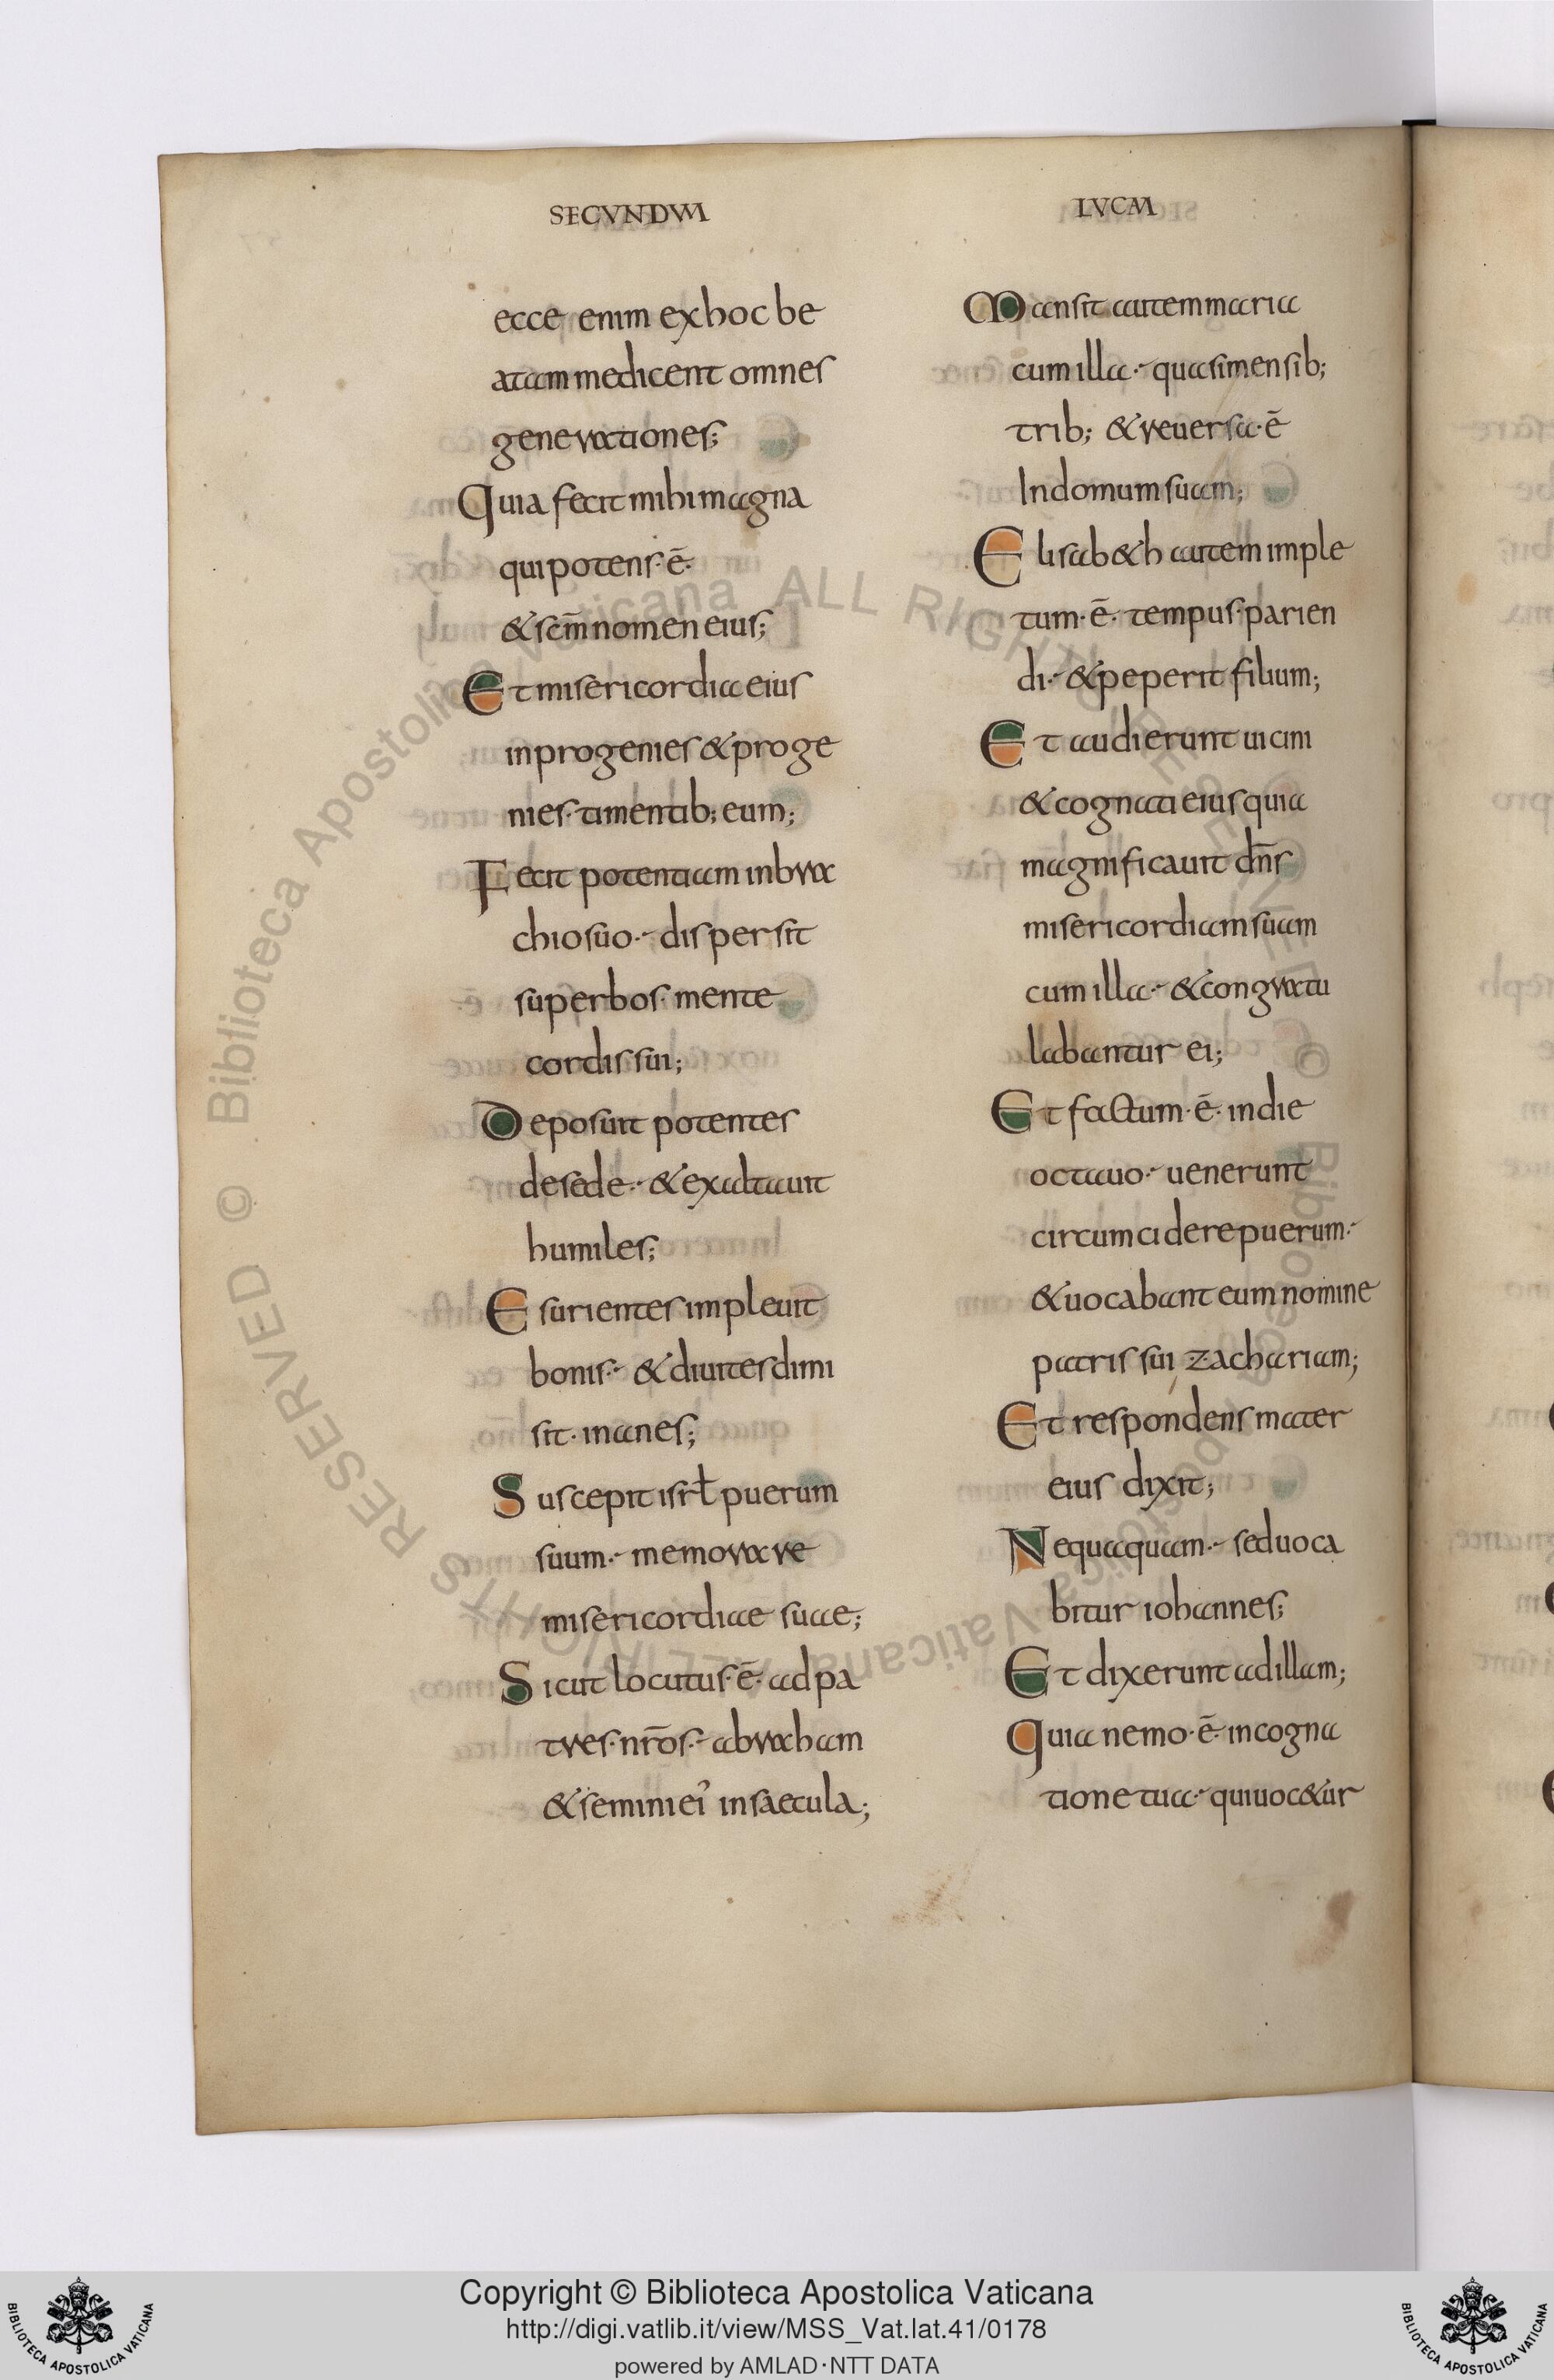 SECUNDUM
ecce enim ex hoc be
atam me dicent omnes
generationes;
Quia fecit mihi magna
qui potens· ē·
& scm̄ nomen eius;
Et misericordia eius
in progenies & proge
nies· timentib; eum;
Fecit potentiam in bra
chio suo·- dispersit
superbos· mente
cordis sui;
Deposuit potentes
de sede·- & exaltauit
humiles;
Esurientes impleuit
bonis·- & diuites dimi
sit· inanes;
Suscepit isrł puerum
suum·- memorare
misericordiae suae;
Sicut locutus· ē· ad pa
tres· nr̄os·- abraham
& semini ei' in saecula;
LUCAM
Mansit autem maria
cum illa·- quasi mensib;
trib; & reuersa· ē
In domum suam;
Elisab&h autem imple
tum· ē· tempus· parien
di·- & peperit filium;
Et audierunt uicini
& cognati eius quia
magnificauit dn̄s
misericordiam suam
cum illa·- & congratu
labantur ei;
Et factum· ē· in die
octauo·- uenerunt
circumcidere puerum·-
& uocabant eum nomine
patris sui zachariam;
Et respondens mater
eius dixit;
Nequaquam·- sed uoca
bitur iohannes;
Et dixerunt ad illam;
Quia nemo· ē· in cogna
tione tua·- qui uoc&ur
Copyright © Biblioteca Apostolica Vaticana
http://digi.vatlib.it/view/MSS_Vat.lat.41/0178
powered by AMLAD·NTT DATA
BIBLIOTECA APOSTOLICA VATICANA
BIBLIOTECA APOSTOLICA VATICANA
© Biblioteca Apostolica Vaticana ALL RIGHTS RESERVED
© Biblioteca Apostolica Vaticana ALL RIGHTS RESERVED